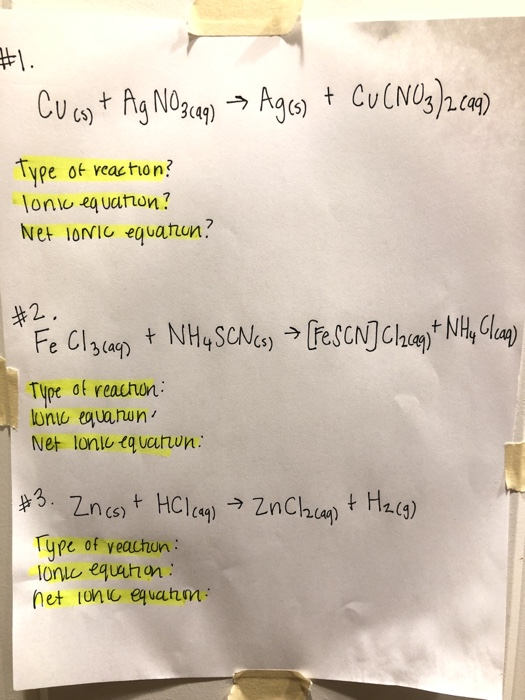 #1.
Cu(s) + AgNO3(aq) → Ag(s) + Cu(NO3)2(aq)
Type of reaction?
Ionic equation?
Net ionic equation?
#2.
FeCl3(aq) + NH4SCN(s) → [FeSCN]Cl2(aq) + NH4Cl(aq)
Type of reaction:
Ionic equation:
Net ionic equation:
#3. Zn(s) + HCl(aq) → ZnCl2(aq) + H2(g)
Type of reaction:
Ionic equation:
net ionic equation: